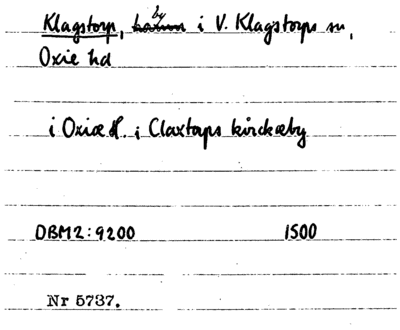 Klagstorp, by i V. Klagstorps sn,
Oxie hd
i Oxiæ H. i Claxtorps kirckæby
DBM2:9200 1500
Nr 5737.